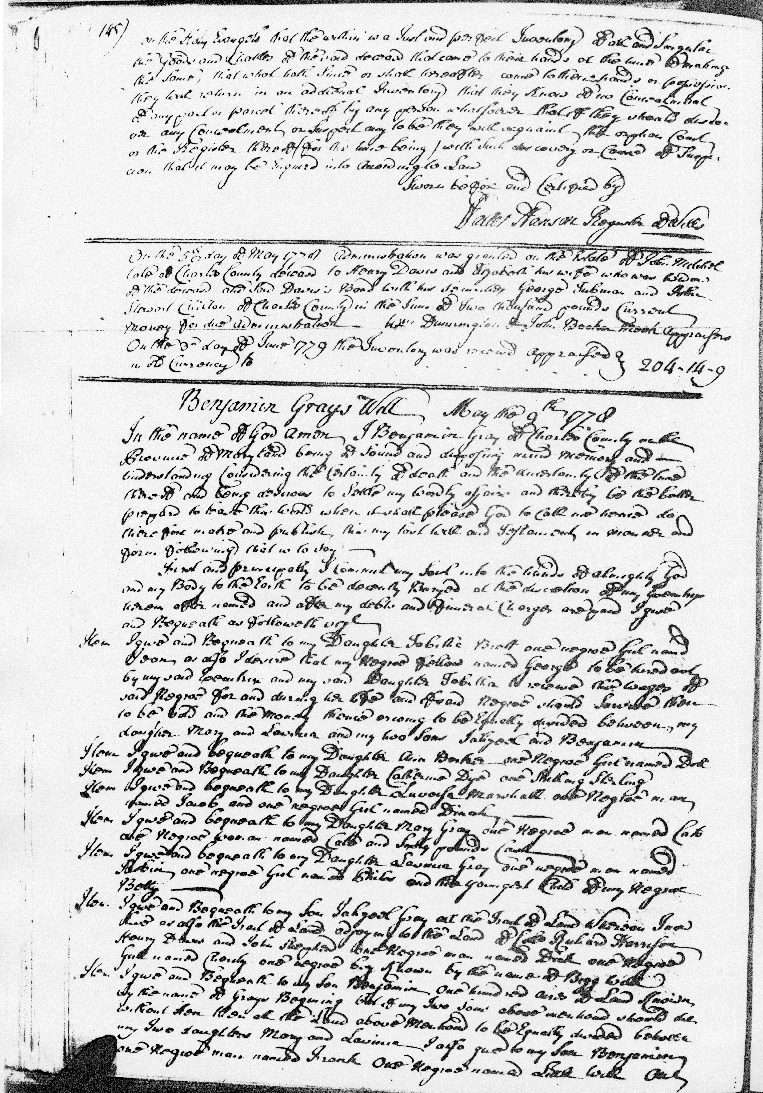 145)
on the Holy Evangels that the within is a Just and perfect Inventory of all and Singular
the Goods and Chattles of the said deceasd that came to their hands at the time of making
the same, that what hath since or shall hereafter come to their hands or possession
they will return in an additional Inventory that they know of no Concealment
of any part or parcel thereof by any person whatsoever that if they should disco-
ver any Concealment or suspect any to be they will acquaint the orphans Court
or the Register thereof (for the time being) with such discovery or Cause of Suspi-
cion that it may be Inquired into according to Law
Sworn before and Certified by
Hanson Register of Wills
On the 5th day of May 1778 Administration was granted on the Estate of John Mitchel
late of Charles County deceasd to Henry Davis and Elizabeth his wife who was widow
of the deceasd and said Davis's Bond with his securities George Tubman and John
Stewart of Charles County in the Sum of two thousand pounds Current
Money for due Administration Dunnington & John Beeton Appraisers
On the day of June 1779 the Inventory was returnd appraised
in Currency to 204-14-9
Benjamin Grays Will May the 9th 1778
In the name of God Amen I Benjamin Gray of Charles County in the
Province of Maryland being of Sound and disposing mind memory and
understanding Considering the Certainty of death and the uncertainty of the time
thereof and being desirous to Settle my wordly affairs and thereby be the better
prepared to leave this world when it shall please God to Call me hence do
therefore make and publish this my last Will and Testament in manner and
form following that is to say
First and principally I commit my Soul into the hands of almighty God
and my Body to the Earth to be decently Buryed at the discretion of my
herein after named and after my debts and funeral Charges are paid I give
and Bequeath as followeth
Item I give and Bequeath to my Daughter Tabitha Brett one negroe Girl named
as also I desire that my Negroe fellow named George to be hired out
by my said and my said Daughter Tabitha to receive the wages of
said Negroe for and during her life and if said Negroe should them
to be Sold and the Money thence ariseing to be Equally divided between my
daughter Mary and Lavinia and my two Sons and Benjamin
Item I give and bequeath to my Daughter Ann one Negroe Girl named Doll
Item I give and Bequeath to my Daughter Catherine Dye one Shilling Sterling
Item I give and bequeath to my Daughter Marshall one Negroe man
named Jacob, and one negroe Girl named Dinah
Item I give and bequeath to my Daughter Mary Gray one Negroe man named Cato
one Negroe woman named Cate and pounds Cash
Item I give and bequeath to my Daughter Lavinia Gray one negroe man named
one negroe Girl named Philis and the youngest Child of my Negroe
Betty
Item I give and Bequeath to my Son Gray all the Tract of Land whereon I now
live as also the Tract of Land adjoyning to the Land of Richard Harrison
Henry Davis and John Shepherd one Negroe man named Dick one Negroe
Girl named Charity one negroe boy known by the name of Bigg Will
Item I give and Bequeath to my Son Benjamin One hundred acres of Land known
by the name of Grays Beginning but if my Two Sons above mentiond should die
without Heir then all the Land above Mentiond to be Equally divided between
my Two daughters Mary and Lavinia I also give to my Son Benjamin
one Negroe man named Frank One Negroe named Little Will One